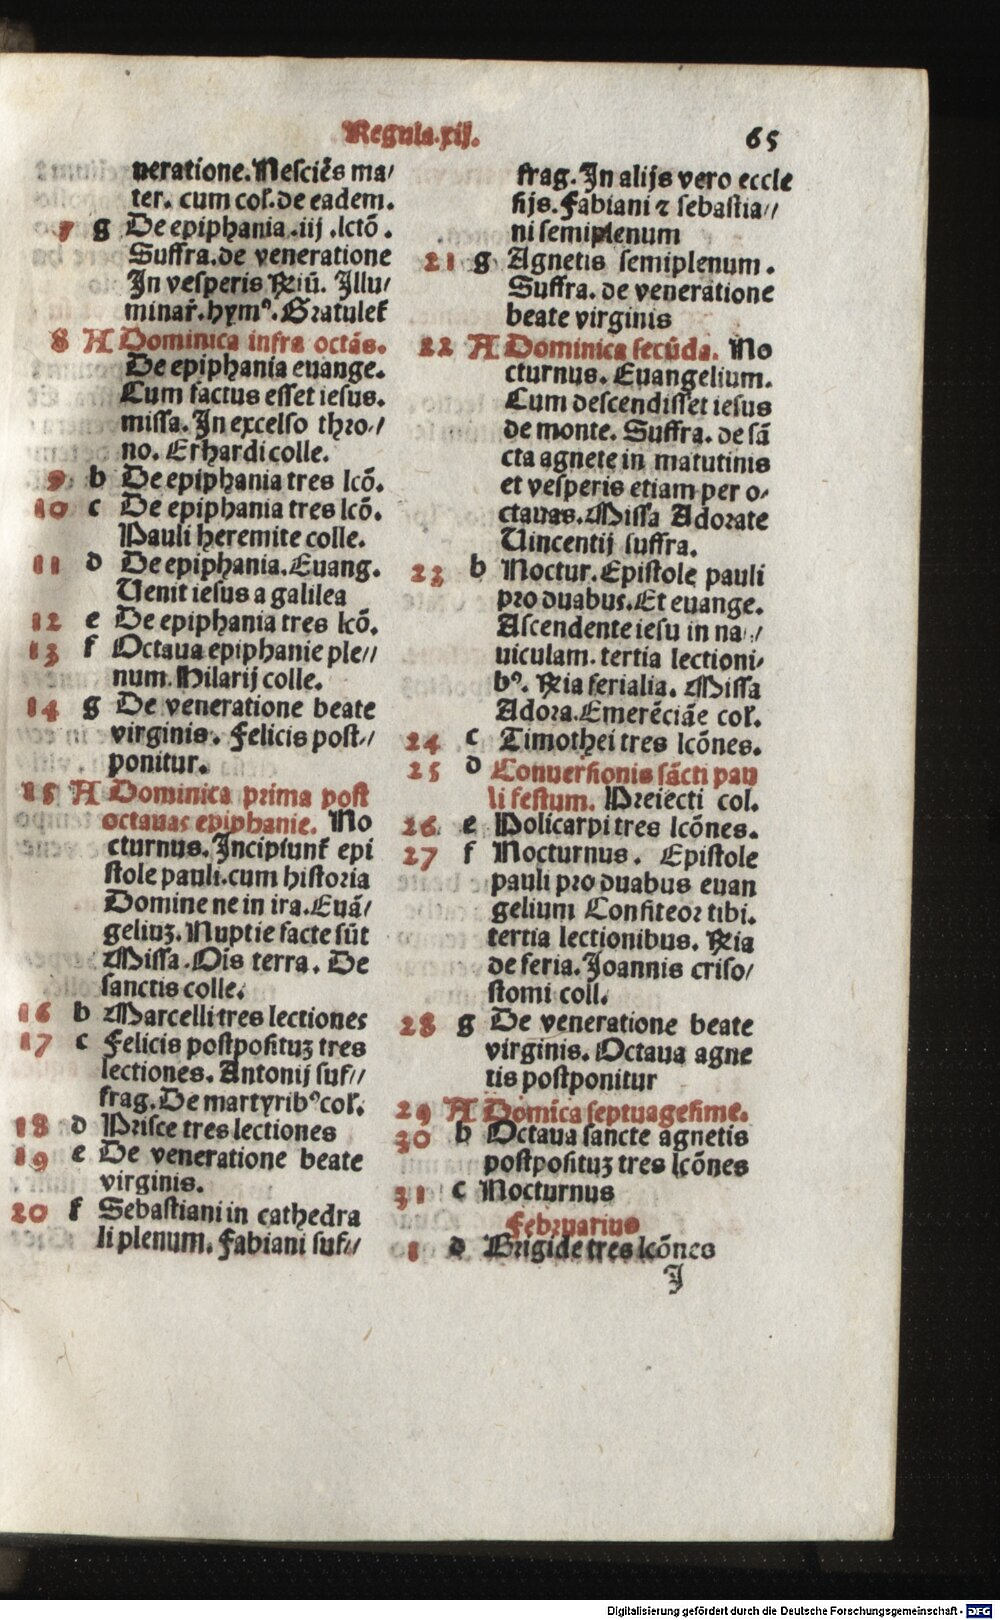 Regula.xij.
65
neratione. Nesciēs ma/
ter. cum col̄. de eadem.
7 g De epiphania .iij .lctō.
Suffra. de veneratione
In vesperis Rūū. Illu/
minar̄. hymꝰ. Gratulet̄
8 A Dominica infra octās.
De epiphania euange.
Cum factus esset iesus.
missa. In excelso thro-/
no. Erhardi colle.
9 b De epiphania tres lcō.
10 c De epiphania tres lcō.
Pauli heremite colle.
11 d De epiphania. Euang.
Uenit iesus a galilea
12 e De epiphania tres lcō.
13 f Octaua epiphanie ple//
num. Hilarij colle.
14 g De veneratione beate
virginis. Felicis post-//
ponitur.
15 A Dominica prima post
octauas epiphanie. No
cturnus. Incipiunt̄ epi
stole pauli. cum historia
Domine ne in ira. Euā/
geliuꝫ. Nuptie facte sūt
Missa. Ois terra. De
sanctis colle.
16 b Marcelli tres lectiones
17 c Felicis postposituꝫ tres
lectiones. Antonij suf//
frag. De martyribꝰ col̄.
18 d Prisce tres lectiones
19 e De veneratione beate
virginis.
20 f Sebastiani in cathedra
li plenum. Fabiani suf//
frag. In alijs vero eccle
sijs. Fabiani ⁊ sebastia//
ni semiplenum
21 g Agnetis semiplenum.
Suffra. de veneratione
beate virginis
22 A Dominica secūda. No
cturnus. Euangelium.
Cum descendisset iesus
de monte. Suffra. de sā
cta agnete in matutinis
et vesperis etiam per o/
ctauas. Missa Adorate
Uincentij suffra.
23 b Noctur. Epistole pauli
pro duabus. Et euange.
Ascendente iesu in na//
uiculam. tertia lectioni/
bꝰ. Rr̄ia ferialia. Missa
Adora. Emerēciāe col̄.
24 c Timothei tres lcōnes.
25 d Conuersionis sācti pau
li festum. Preiecti col.
26 e Policarpi tres lcōnes.
27 f Nocturnus. Epistole
pauli pro duabus euan
gelium Confiteor tibi.
tertia lectionibus. Rr̄ia
de feria. Joannis criso/
stomi coll.
28 g De veneratione beate
virginis. Octaua agne
tis postponitur
29 A Domīca septuagesime.
30 b Octaua sancte agnetis
postposituꝫ tres lcōnes
31 c Nocturnus
Februarius
1 d Brigide tres lcōnes
J
Digitalisierung gefördert durch die Deutsche Forschungsgemeinschaft - DFG